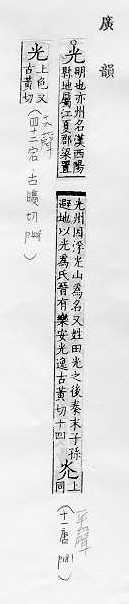 廣韻
光
明也亦州名漢西陽
縣地屬江夏郡梁置
光州因浮光山為名又姓田光之後秦末子孫
避地以光為氏晉有樂安光逸古黃切十四
灮
上
同
平聲
(十一唐 p181)
光
上色又
古黃切
去聲
(四十二宕,古曠切